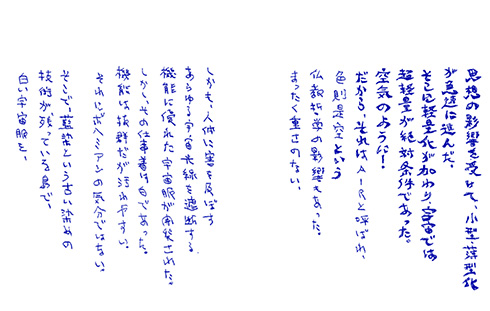 思想の影響を受けて、小型・薄型化
が急速に進んだ。
そこに軽量化が加わり、宇宙では
超軽量が絶対条件であった。
空気のように！
だから、それは、AIRと呼ばれ、
色則是空という
仏教哲学の影響もあった。
まったく重さのない、
しかも、人体に害を及ぼす
あらゆる宇宙光線を遮断する、
機能に優れた宇宙服が開発された。
しかし、その仕事着は白であった。
機能は抜群だが汚れやすい。
それにボヘミアンの気分ではない。
そこで、藍染という古い染めの
技術が残っている島で、
白い宇宙服を、